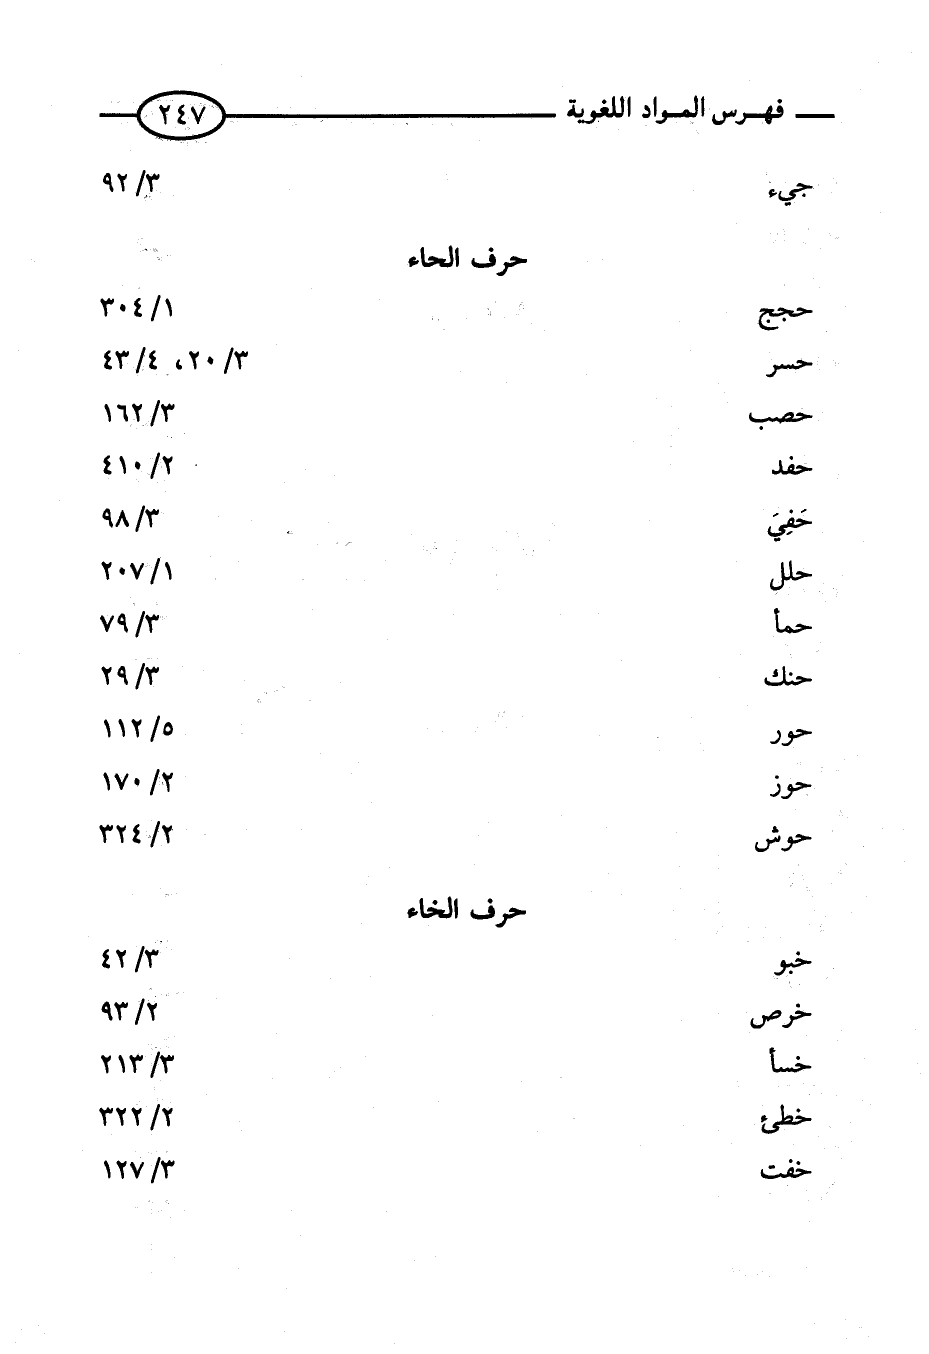 فهرس المواد اللغوية ٢٤٧
جيء ٣/ ٩٢
حرف الحاء
حجج ١/ ٣٠٤
حسر ٣/ ٢٠، ٤/ ٤٣
حصب ٣/ ١٦٢
حفد ٢/ ٤١٠
حَفِيَ ٣/ ٩٨
حلل ١/ ٢٠٧
حمأ ٣/ ٧٩
حنك ٣/ ٢٩
حور ٥/ ١١٢
حوز ٢/ ١٧٠
حوش ٢/ ٣٢٤
حرف الخاء
خبو ٣/ ٤٢
خرص ٢/ ٩٣
خسأ ٣/ ٢١٣
خطئ ٢/ ٣٢٢
خفت ٣/ ١٢٧